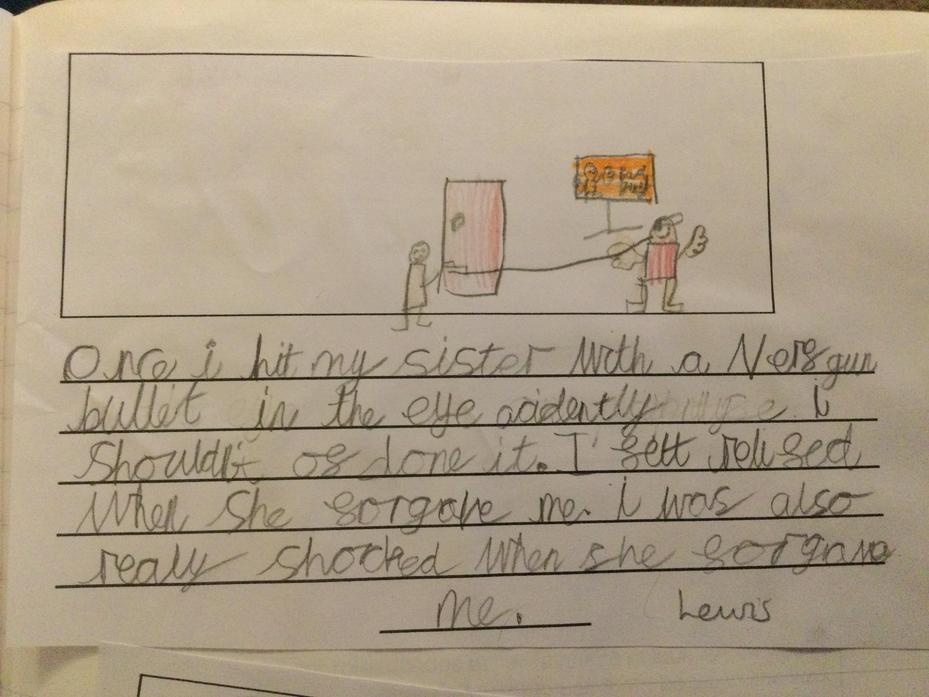 Once i hit my sister with a Nerf gun
bullet in the eye acidently i
Shouldn't of done it. I felt relised
When She forgave me. i was also
realy shocked when she forgave
me. Lewis